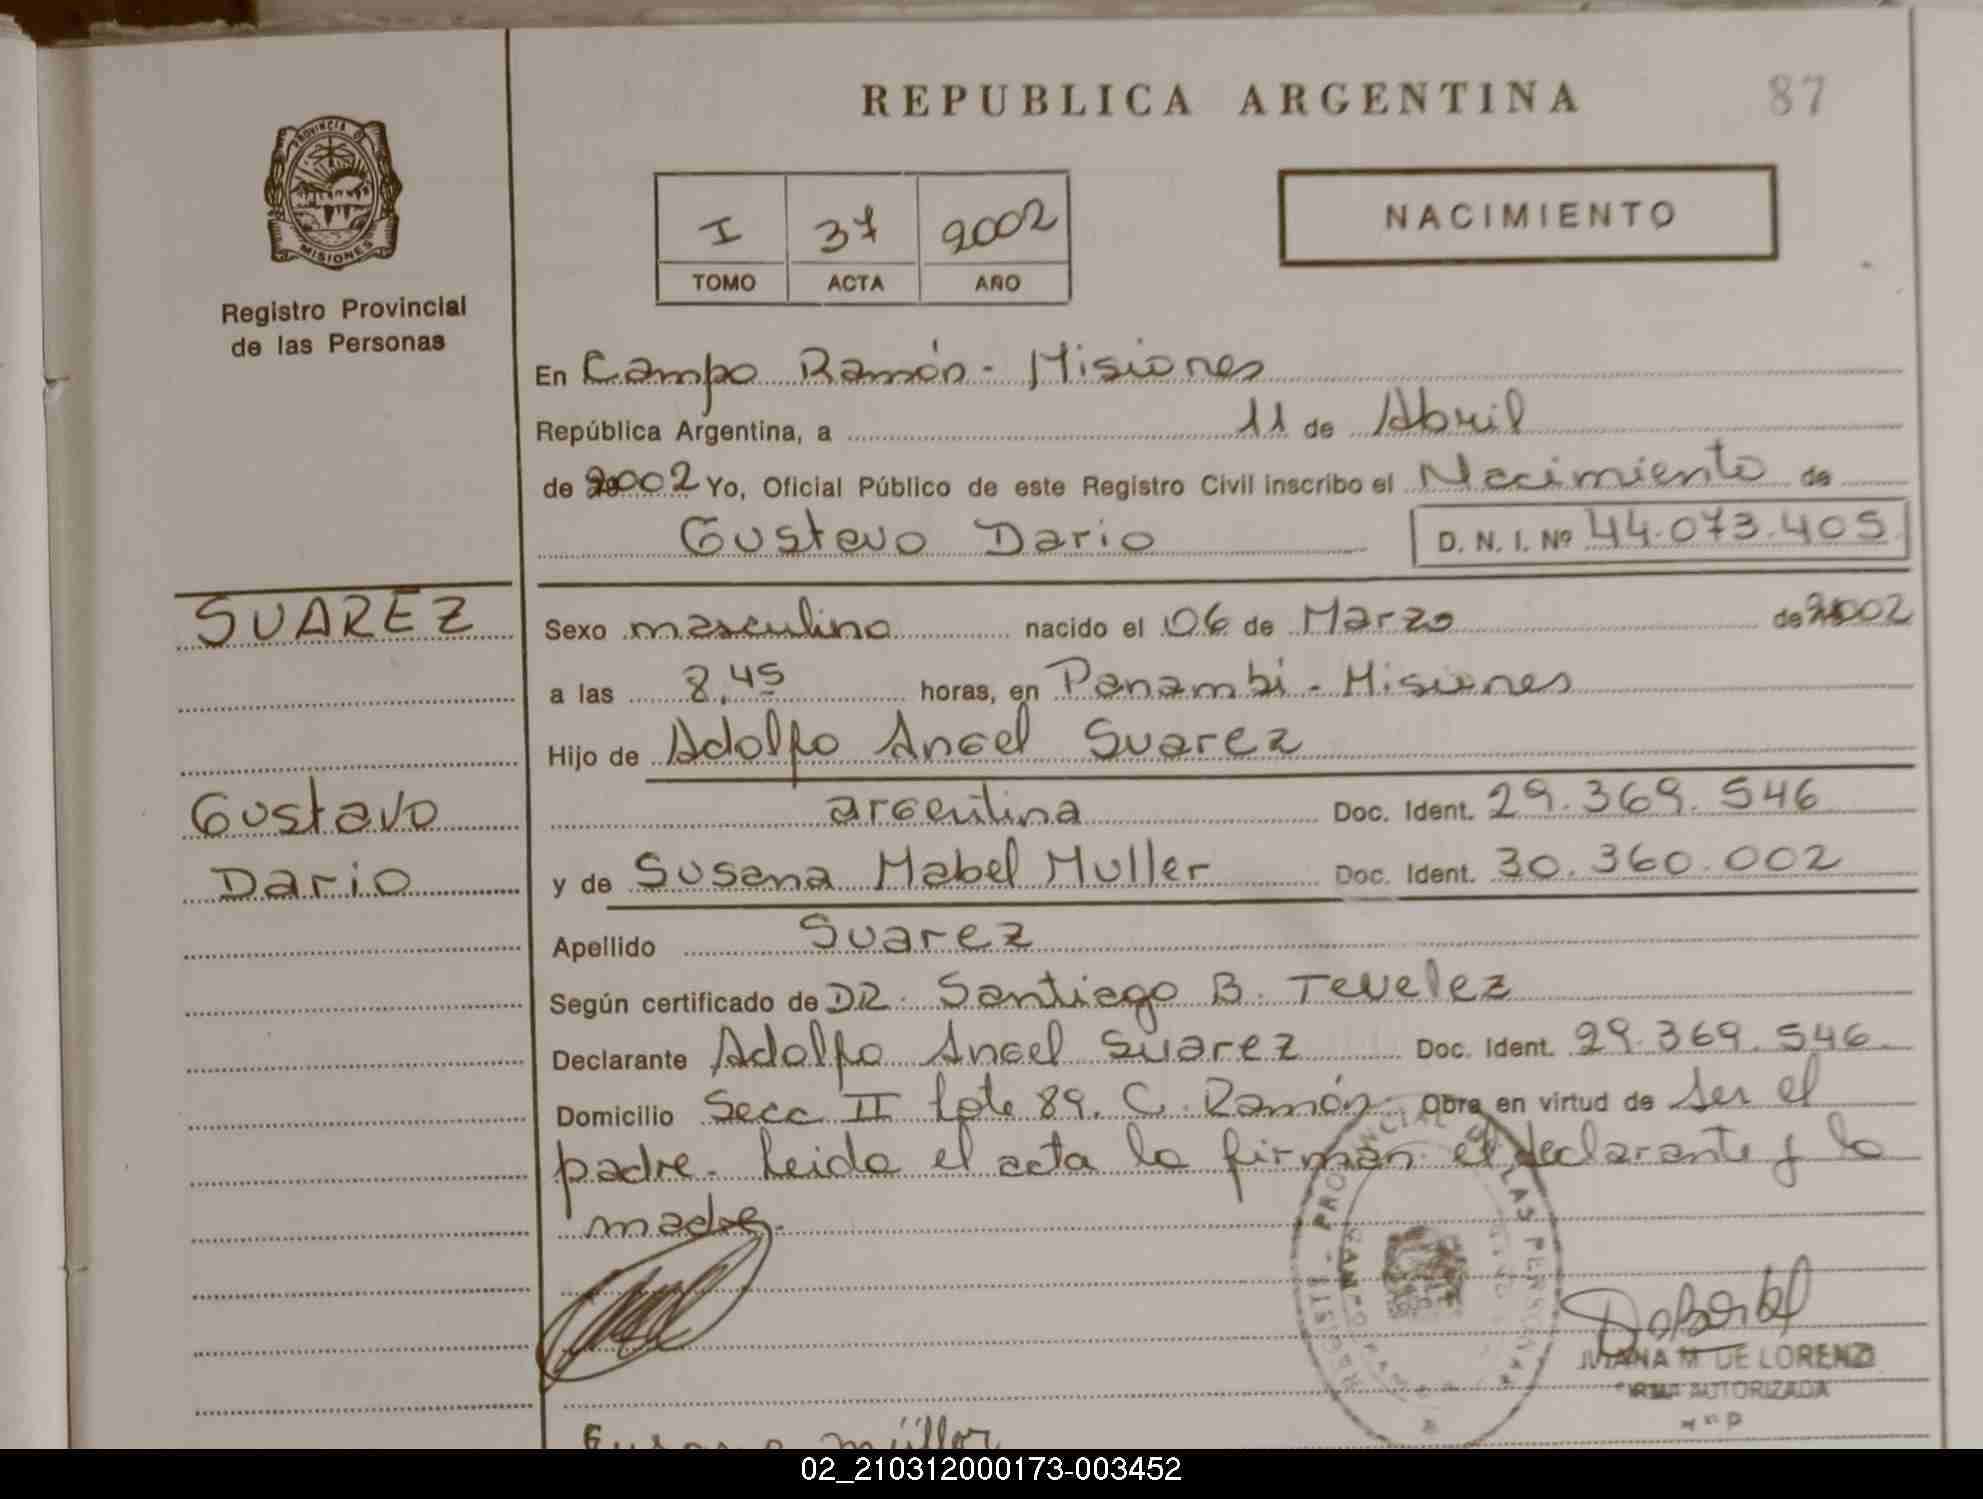 REPUBLICA ARGENTINA 87
PROVINCIA D
MISIONES
Registro Provincial
de las Personas
I 37 2002
TOMO ACTA AÑO
NACIMIENTO
En Campo Ramón - Misiones
República Argentina, a 11 de Abril
de 2002 Yo, Oficial Público de este Registro Civil inscribo el Nacimiento de
Gustavo Dario D. N. I. Nº 44.073.405
SUAREZ
Gustavo
Dario
Sexo masculino nacido el 06 de Marzo de 2002
a las 8,45 horas, en Panambi - Misiones
Hijo de Adolfo Angel Suarez
argentina Doc. Ident. 29.369.546
y de Susana Mabel Muller Doc. Ident. 30.360.002
Apellido Suarez
Según certificado de DR. Santiago B. Tevelez
Declarante Adolfo Angel Suarez Doc. Ident. 29.369.546
Domicilio Secc II Lote 89. C. Ramón Obra en virtud de ser el
padre. Leida el acta la firman el declarante y la
madre.
PROVINCIAL DE LAS PERSONAS
DE LORENZI
FIRMA AUTORIZADA
müller
02_210312000173-003452